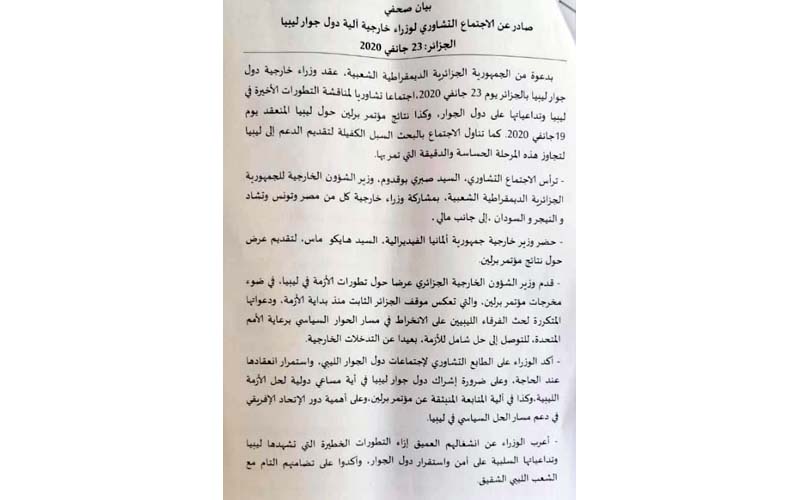 بيان صحفي
صادر عن الاجتماع التشاوري لوزراء خارجية آلية دول جوار ليبيا
الجزائر: 23 جانفي 2020
بدعوة من الجمهورية الجزائرية الديمقراطية الشعبية، عقد وزراء خارجية دول
جوار ليبيا بالجزائر يوم 23 جانفي 2020،اجتماعا تشاوريا لمناقشة التطورات الأخيرة في
ليبيا وتداعياتها على دول الجوار، وكذا نتائج مؤتمر برلين حول ليبيا المنعقد يوم
19جانفي 2020. كما تناول الاجتماع بالبحث السبل الكفيلة لتقديم الدعم إلى ليبيا
لتجاوز هذه المرحلة الحساسة والدقيقة التي تمر بها.
- ترأس الاجتماع التشاوري، السيد صبري بوقدوم، وزير الشؤون الخارجية للجمهورية
الجزائرية الديمقراطية الشعبية، بمشاركة وزراء خارجية كل من مصر وتونس وتشاد
و النيجر و السودان ،إلى جانب مالي .
- حضر وزير خارجية جمهورية ألمانيا الفيديرالية، السيد هايكو ماس، لتقديم عرض
حول نتائج مؤتمر برلين.
- قدم وزير الشؤون الخارجية الجزائري عرضا حول تطورات الأزمة في ليبيا، في ضوء
مخرجات مؤتمر برلين، والتي تعكس موقف الجزائر الثابت منذ بداية الأزمة، ودعواتها
المتكررة لحث الفرقاء الليبيين على الانخراط في مسار الحوار السياسي برعاية الأمم
المتحدة، للتوصل إلى حل شامل للأزمة، بعيدا عن التدخلات الخارجية.
- أكد الوزراء على الطابع التشاوري لإجتماعات دول الجوار الليبي، واستمرار انعقادها
عند الحاجة، وعلى ضرورة إشراك دول جوار ليبيا في أية مساعي دولية لحل الأزمة
الليبية،وكذا في آلية المتابعة المنبثقة عن مؤتمر برلين،وعلى أهمية دور الإتحاد الإفريقي
في دعم مسار الحل السياسي في ليبيا.
- أعرب الوزراء عن انشغالهم العميق إزاء التطورات الخطيرة التي تشهدها ليبيا
وتداعياتها السلبية على أمن واستقرار دول الجوار، وأكدوا على تضامنهم التام مع
الشعب الليبي الشقيق.